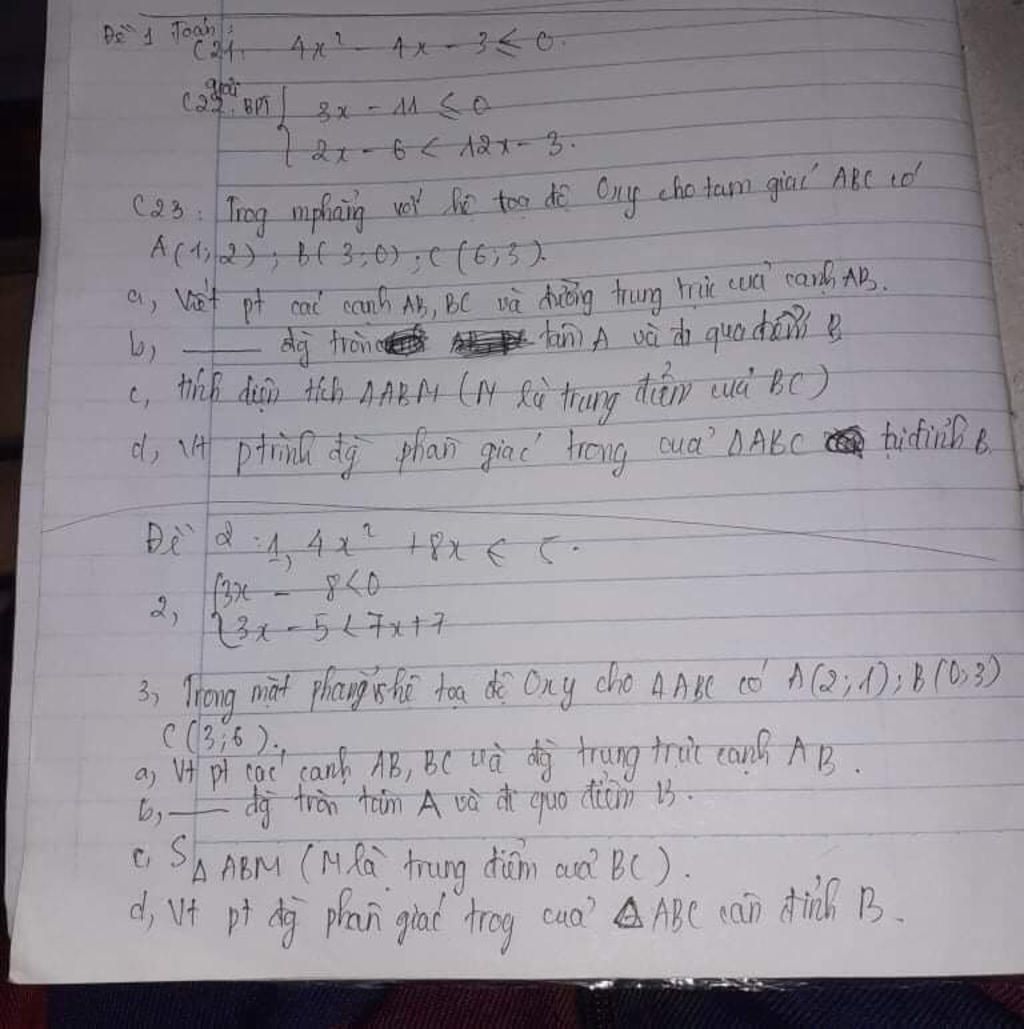 Đề 1 Toán:
C21. 4x² - 4x - 3 ≤ 0.
C22. giải BPT { 3x - 11 ≤ 0
2x - 6 < 12x - 3.
C23: Trog mphẳng với hệ toạ độ Oxy cho tam giác ABC có
A(1;2); B(3;0); C(6;3).
a, Viết pt các cạnh AB, BC và đường trung trực của cạnh AB.
b, —— đg tròn tâm A và đi qua điểm B
c, tính diện tích ΔABM (M là trung điểm của BC)
d, Vt ptrình đg phân giác trong của ΔABC tại đỉnh B.
Đề 2: 1, 4x² + 8x ≤ 5.
2, { 3x - 8 < 0
3x - 5 < 7x + 7
3, Trong mặt phẳng hệ toạ độ Oxy cho ΔABC có A(2;1); B(0;3)
C(3;6).
a, Vt pt các cạnh AB, BC và đg trung trực cạnh AB.
b, —— đg tròn tâm A và đi qua điểm B.
c, S Δ ABM (M là trung điểm của BC).
d, Vt pt đg phân giác trog của Δ ABC đỉnh B.